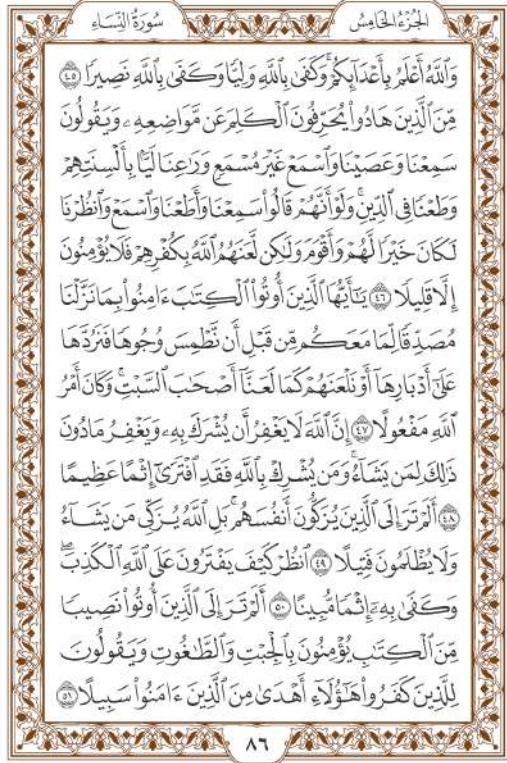 الجُزْءُ الخَامِسُ
سُورَةُ النِّسَاءِ
وَٱللَّهُ أَعْلَمُ بِأَعْدَآئِكُمْۚ وَكَفَىٰ بِٱللَّهِ وَلِيًّا وَكَفَىٰ بِٱللَّهِ نَصِيرًا ٤٥
مِّنَ ٱلَّذِينَ هَادُواْ يُحَرِّفُونَ ٱلْكَلِمَ عَن مَّوَاضِعِهِۦ وَيَقُولُونَ
سَمِعْنَا وَعَصَيْنَا وَٱسْمَعْ غَيْرَ مُسْمَعٍ وَرَٰعِنَا لَيًّۢا بِأَلْسِنَتِهِمْ
وَطَعْنًا فِي ٱلدِّينِۚ وَلَوْ أَنَّهُمْ قَالُواْ سَمِعْنَا وَأَطَعْنَا وَٱسْمَعْ وَٱنظُرْنَا
لَكَانَ خَيْرًا لَّهُمْ وَأَقْوَمَ وَلَٰكِن لَّعَنَهُمُ ٱللَّهُ بِكُفْرِهِمْ فَلَا يُؤْمِنُونَ
إِلَّا قَلِيلًا ٤٦ يَٰٓأَيُّهَا ٱلَّذِينَ أُوتُواْ ٱلْكِتَٰبَ ءَامِنُواْ بِمَا نَزَّلْنَا
مُصَدِّقًا لِّمَا مَعَكُم مِّن قَبْلِ أَن نَّطْمِسَ وُجُوهًا فَنَرُدَّهَا
عَلَىٰٓ أَدْبَارِهَآ أَوْ نَلْعَنَهُمْ كَمَا لَعَنَّآ أَصْحَٰبَ ٱلسَّبْتِۚ وَكَانَ أَمْرُ
ٱللَّهِ مَفْعُولًا ٤٧ إِنَّ ٱللَّهَ لَا يَغْفِرُ أَن يُشْرَكَ بِهِۦ وَيَغْفِرُ مَا دُونَ
ذَٰلِكَ لِمَن يَشَآءُۚ وَمَن يُشْرِكْ بِٱللَّهِ فَقَدِ ٱفْتَرَىٰٓ إِثْمًا عَظِيمًا
٤٨ أَلَمْ تَرَ إِلَى ٱلَّذِينَ يُزَكُّونَ أَنفُسَهُمۚ بَلِ ٱللَّهُ يُزَكِّي مَن يَشَآءُ
وَلَا يُظْلَمُونَ فَتِيلًا ٤٩ ٱنظُرْ كَيْفَ يَفْتَرُونَ عَلَى ٱللَّهِ ٱلْكَذِبَۖ
وَكَفَىٰ بِهِۦٓ إِثْمًا مُّبِينًا ٥٠ أَلَمْ تَرَ إِلَى ٱلَّذِينَ أُوتُواْ نَصِيبًا
مِّنَ ٱلْكِتَٰبِ يُؤْمِنُونَ بِٱلْجِبْتِ وَٱلطَّٰغُوتِ وَيَقُولُونَ
لِلَّذِينَ كَفَرُواْ هَٰٓؤُلَآءِ أَهْدَىٰ مِنَ ٱلَّذِينَ ءَامَنُواْ سَبِيلًا ٥١
٨٦